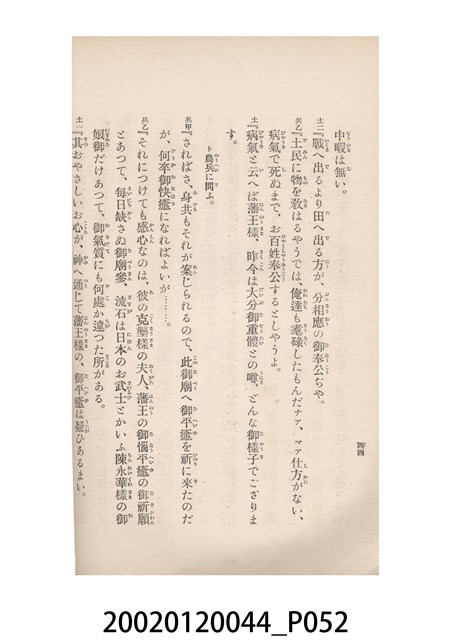 中暇は無い。
土三『戰へ出るより田へ出る方が、分相應の御奉公ぢや。
兵乙『土民に物を敎はるやうでは、俺達も耄碌したもんだナァ、マァ仕方がない、
病氣で死ぬまで、お百姓奉公するとしやうよ。
土一『病氣と云へば藩王樣、昨今は大分御重體との噂、どんな御樣子でござりま
す。
ト農兵に問ふ。
兵甲『さればさ、身共もそれが案じられるので、此御廟へ御平癒を祈に來たのだ
が、何卒御快癒になればよいが……。
兵乙『それにつけても感心なのは、彼の克𡒉樣の夫人、藩王の御惱平癒の御祈願
とあつて、每日缺さぬ御廟參、流石は日本のお武士とかいふ陳永華樣の御
娘御だけあつて、御氣質にも何處か違つた所がある。
土二『其おやさしいお心が、神へ通じて藩王樣の、御平癒は疑ひあるまい。
四四
20020120044_P052